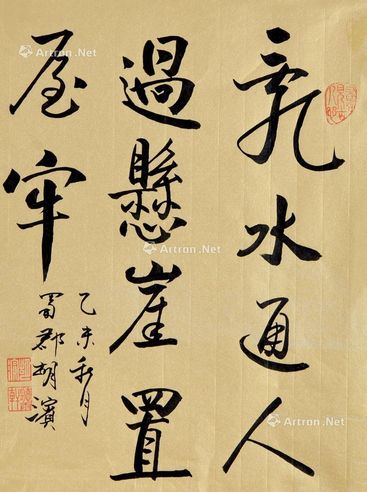 亂水通人
過懸崖置
屋牢
乙未秋月
蜀郡胡濱
Artron.Net
Artron.Net
Artron.Net
Artron.Net